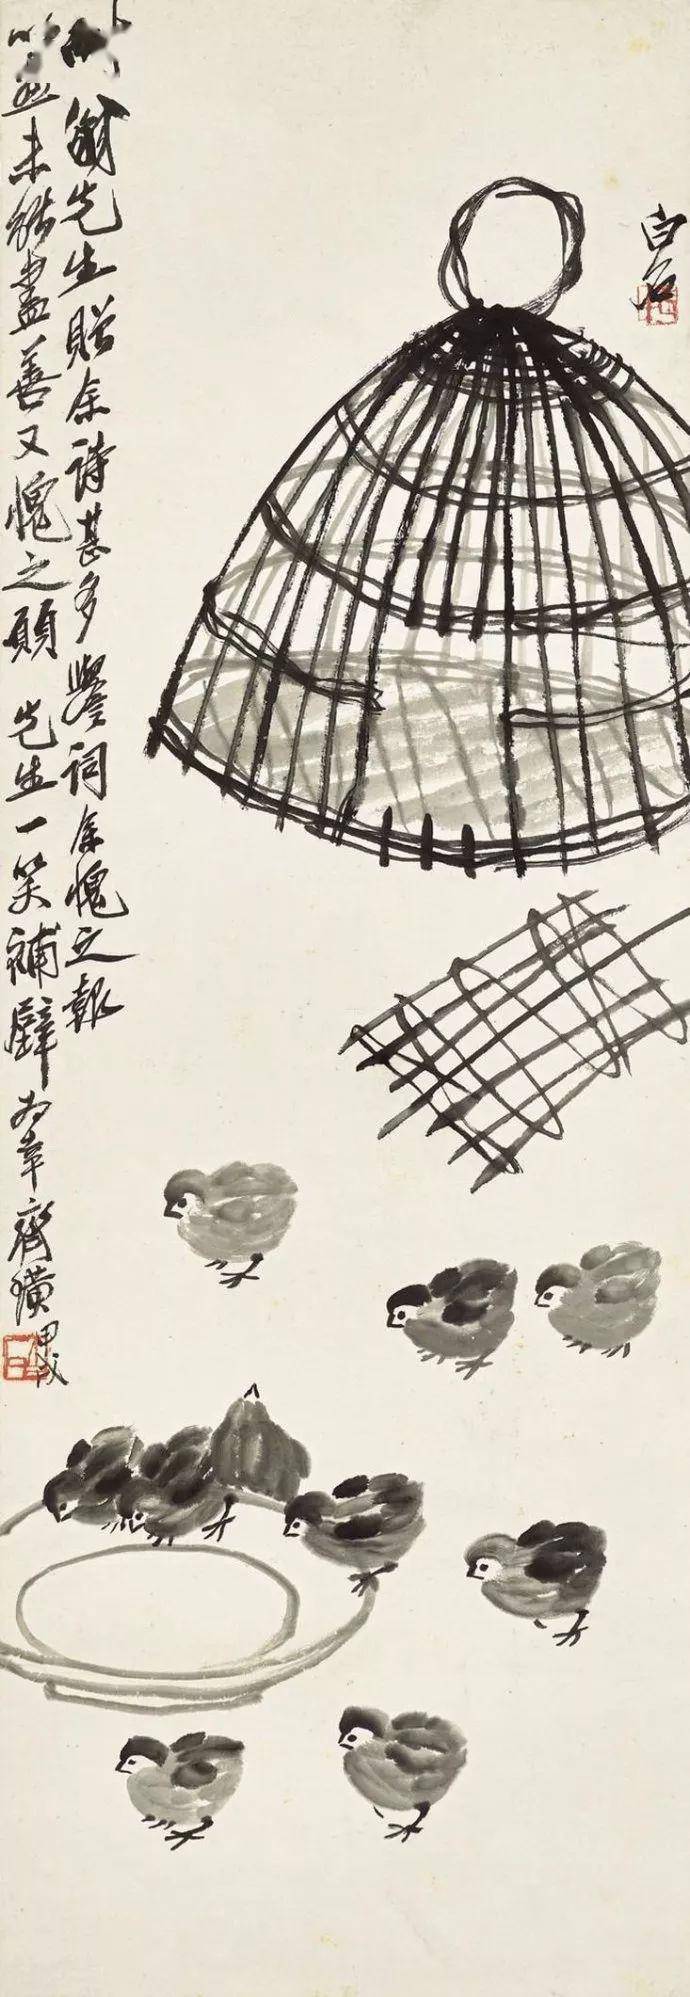 白石
先生贈余詩甚多譽詞余愧之報
未能盡善又愧之願 先生一笑補壁為幸 齊璜 甲戌